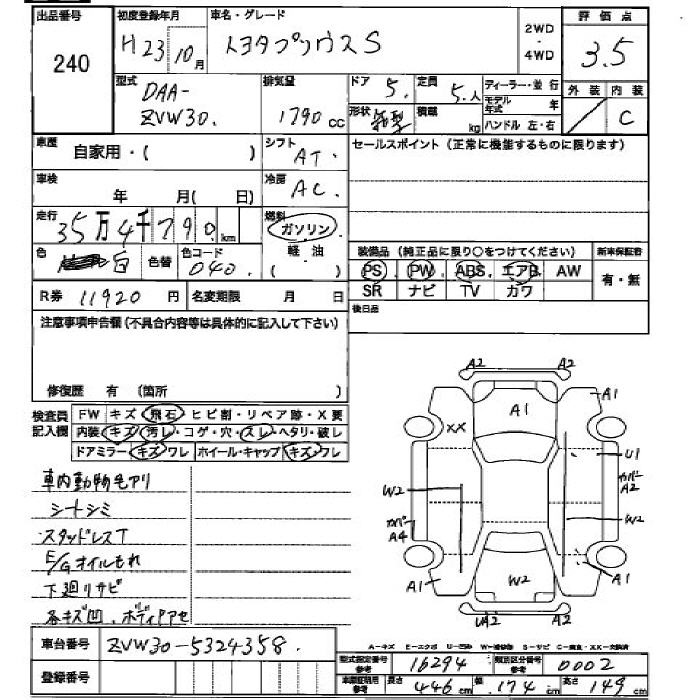 出品番号 初度登録年月 車名・グレード 2WD・4WD 評価点
240 H23 10月 トヨタプリウスS 3.5
型式 DAA-ZVW30. 排気量 1790cc ドア 5. 定員 5.人 ディーラー・並行 外装 内装
形状 箱型 積載 kg モデル年式 年 ハンドル 左・右 C
車歴 自家用・( ) シフト AT. セールスポイント(正常に機能するものに限ります)
車検 年 月( 日) 冷房 AC.
走行 35万4千790km 燃料 ガソリン・軽油( )
色 白 色替 色コード 040. 装備品(純正品に限り○をつけてください) 新車保証書
PS. PW. ABS. エアB. AW 有・無
SR ナビ TV カワ
R券 11920円 名変期限 月 日 後日品
注意事項申告欄(不具合内容等は具体的に記入して下さい)
修復歴 有 (箇所 )
検査員記入欄 FW キズ・飛石・ヒビ割・リペア跡・X要
内装 キズ・汚レ・コゲ・穴・スレ・ヘタリ・破レ
ドアミラー キズ・ワレ ホイール・キャップ キズ・フレ
A2 A2
A1 A1
XX
U1
カバー A2
W2 W2
カバー A4
A1 W2 A1
UA2 A2
車内動物毛アリ
シートシミ
スタッドレスT
E/Gオイルもれ
下廻リサビ
各キズ凹、ボディアセ
車台番号 ZVW30-5324358.
A-キズ E-エクボ U-凹み W-補修跡 S-サビ C-腐食・XX-交換済
登録番号 型式指定番号 参考 16294 類別区分番号 参考 0002
車庫証明用 参考 長さ 446cm 幅 174cm 高さ 149cm